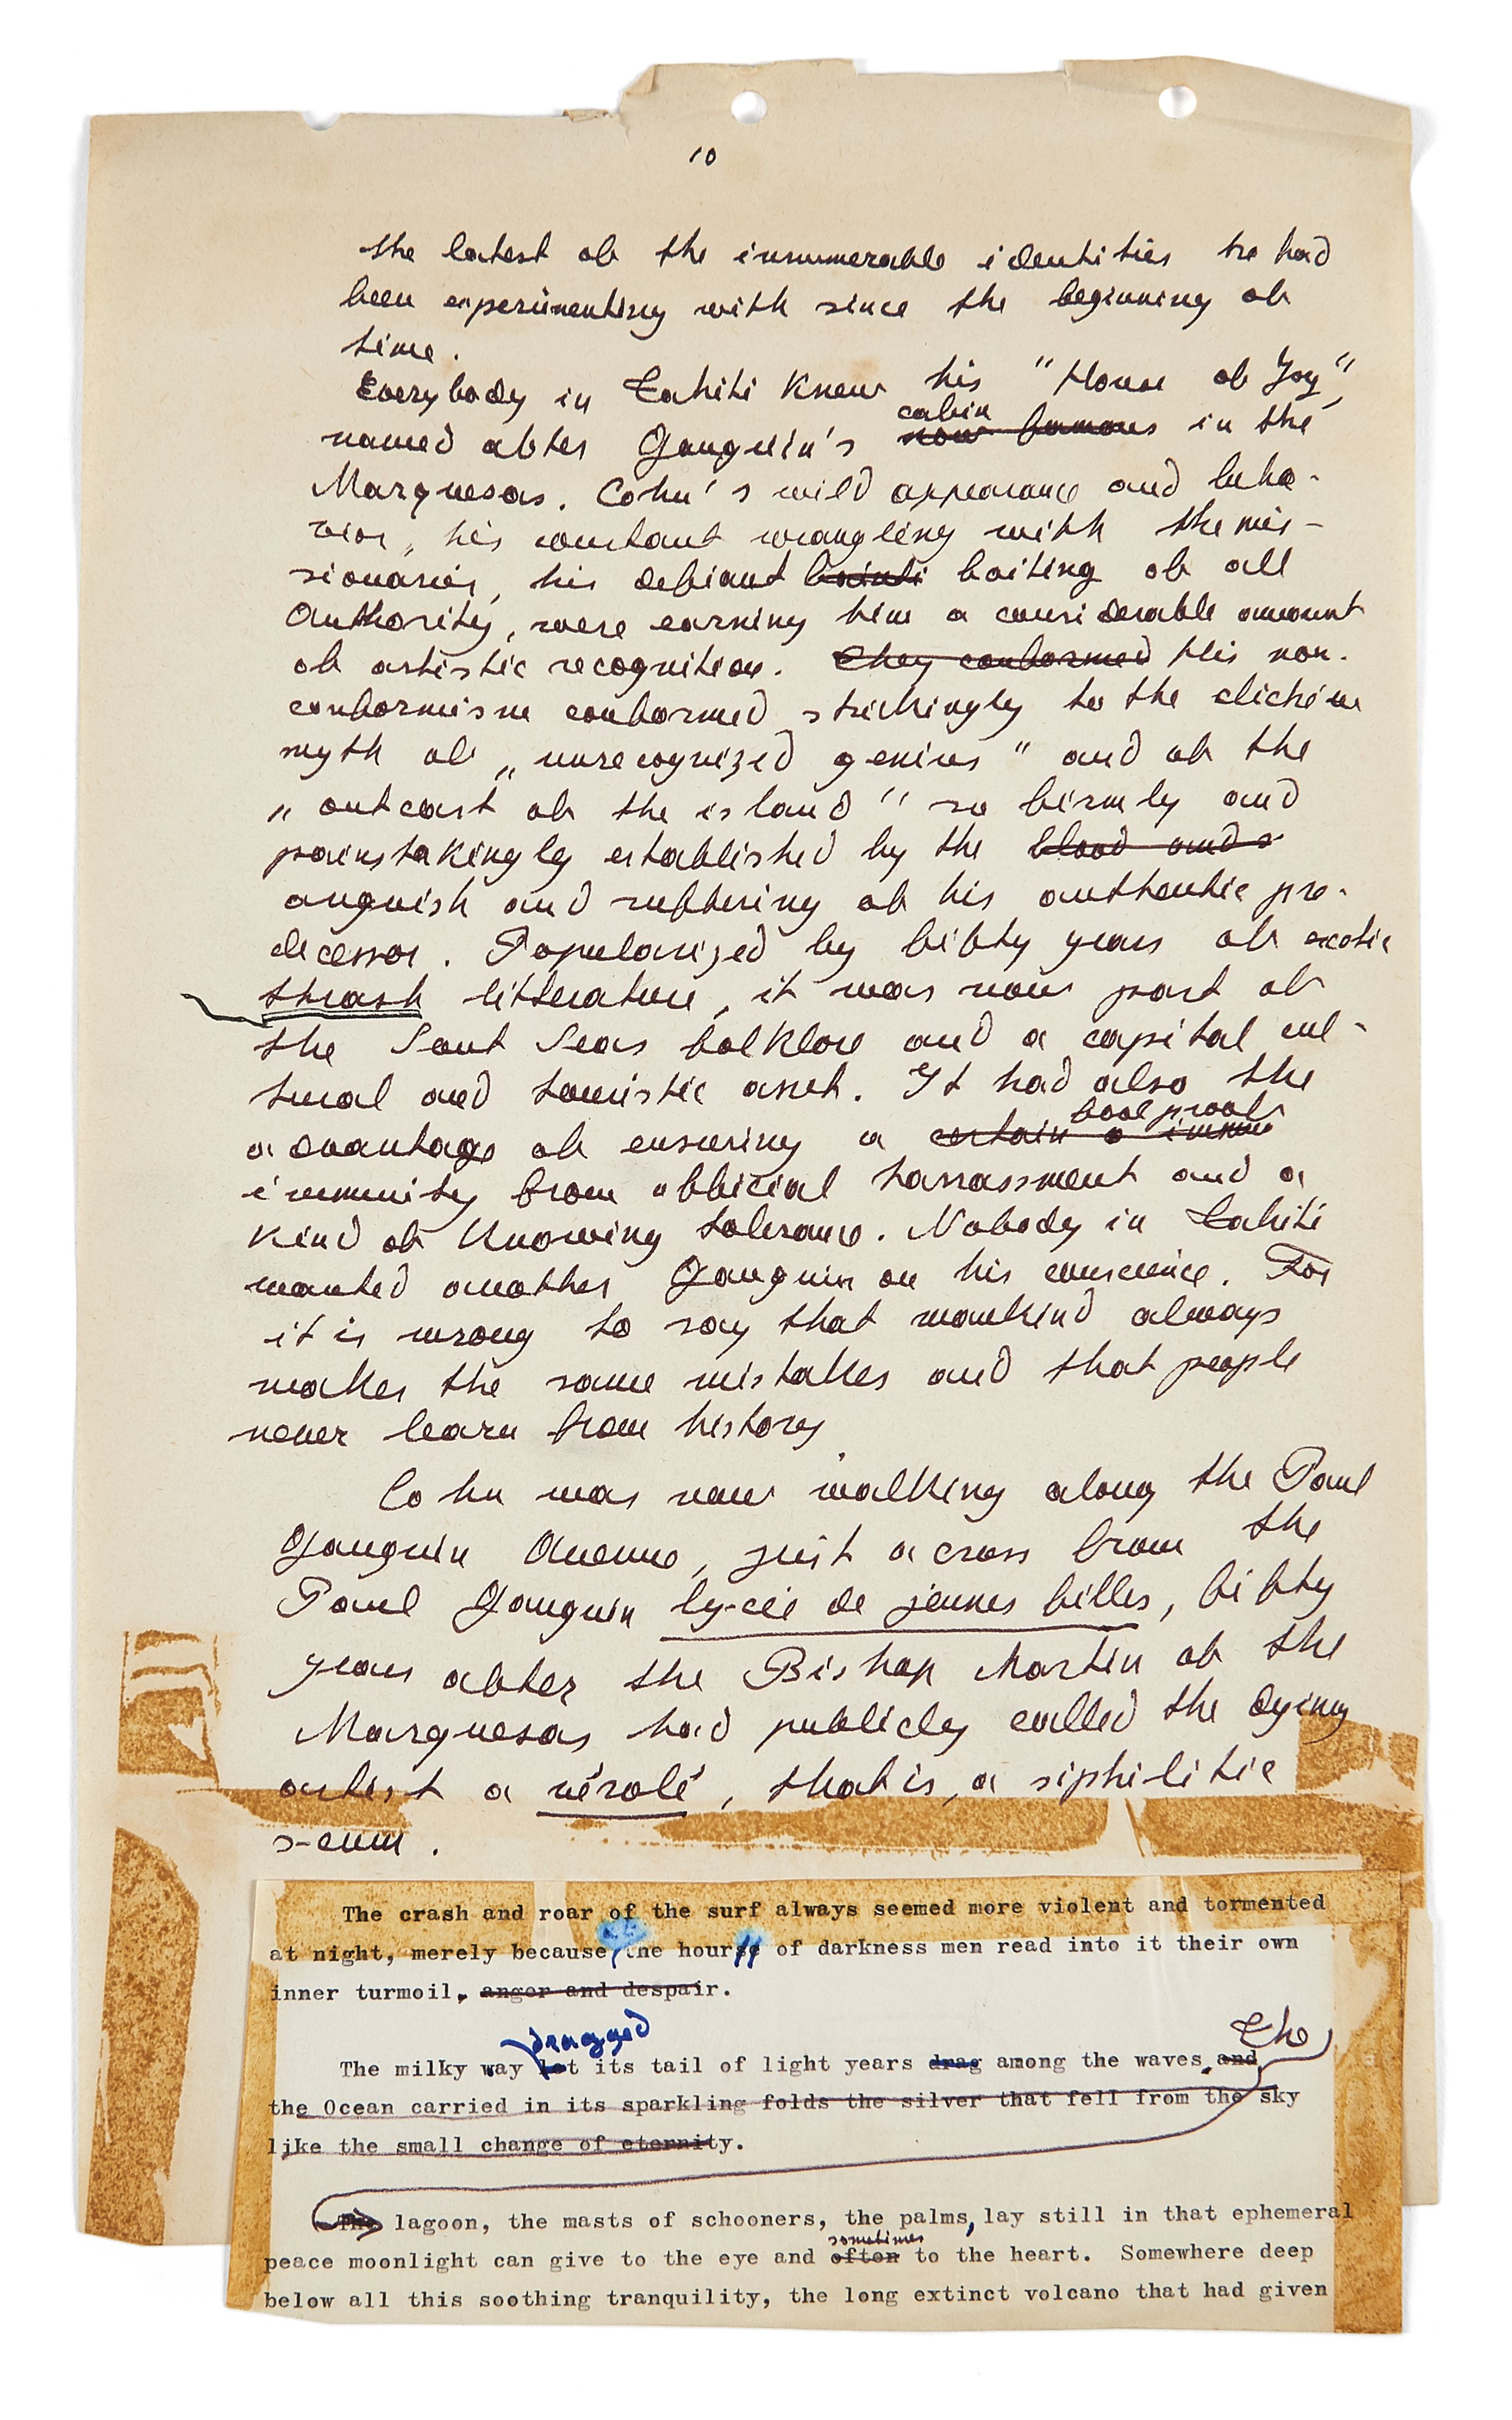 10
the latest of the innumerable identities he had
been experimenting with since the beginning of
time.
Everybody in Tahiti knew his "House of Joy",
cabin
named after Gauguin's now famous in the
Marquesas. Cohn's wild appearance and beha-
vior, his constant wrangling with the mis-
sionaries, his defiant baiting of all
Authority, were earning him a considerable amount
of artistic recognition. They conformed His non-
conformism conformed strikingly to the cliché in
myth of „unrecognized genius" and of the
„outcast of the island" so firmly and
painstakingly established by the blood and s
anguish and suffering of his authentic pre-
decessor. Popularized by fifty years of exotic
thrash litterature, it was now part of
the Sout Seas folklore and a capital cul-
tural and touristic asset. It had also the
fool proof
advantage of ensuring a certain a immu
immunity from official harrassment and a
kind of knowing tolerance. Nobody in Tahiti
wanted another Gauguin on his conscience. For
it is wrong to say that mankind always
makes the same mistakes and that people
never learn from history
Cohn was now walking along the Paul
Gauguin Avenue, just across from the
Paul Gauguin lycée de jeunes filles, fifty
years after the Bishop Martin of the
Marquesas had publicly called the dying
artist a vérolé, that is, a siphilitic
scum.
The crash and roar of the surf always seemed more violent and tormented
at night, merely because the hours of darkness men read into it their own
inner turmoil, anger and despair.
dragged The
The milky way let its tail of light years drag among the waves. and
the Ocean carried in its sparkling folds the silver that fell from the sky
like the small change of eternity.
The lagoon, the masts of schooners, the palms, lay still in that ephemeral
sometimes
peace moonlight can give to the eye and often to the heart. Somewhere deep
below all this soothing tranquility, the long extinct volcano that had given